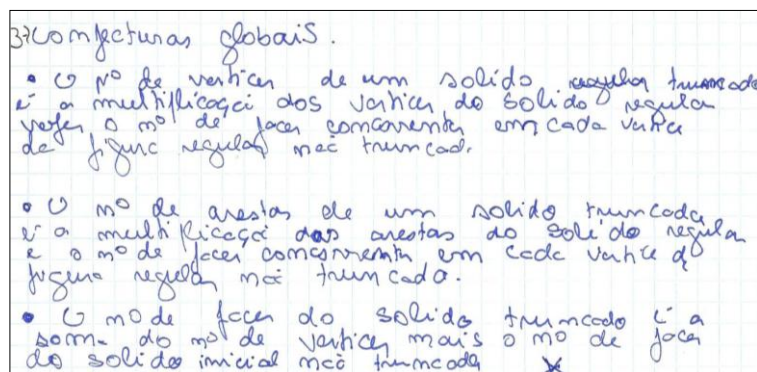 37 Conjecturas globais.
• O nº de vertices de um solido regular truncado
é a multiplicaçã dos vertices do solido regular
vezes o nº de faces concorrentes em cada vertice
da figura regular não truncad.
• O nº de arestas de um solido truncado
é a multiplicaçã das arestas do solido regular
e o nº de faces concorrentes em cada vertice da
figura regular não truncada.
• O nº de faces do solido truncado é a
soma do nº de vertices mais o nº de faces
do solido inicial não truncado